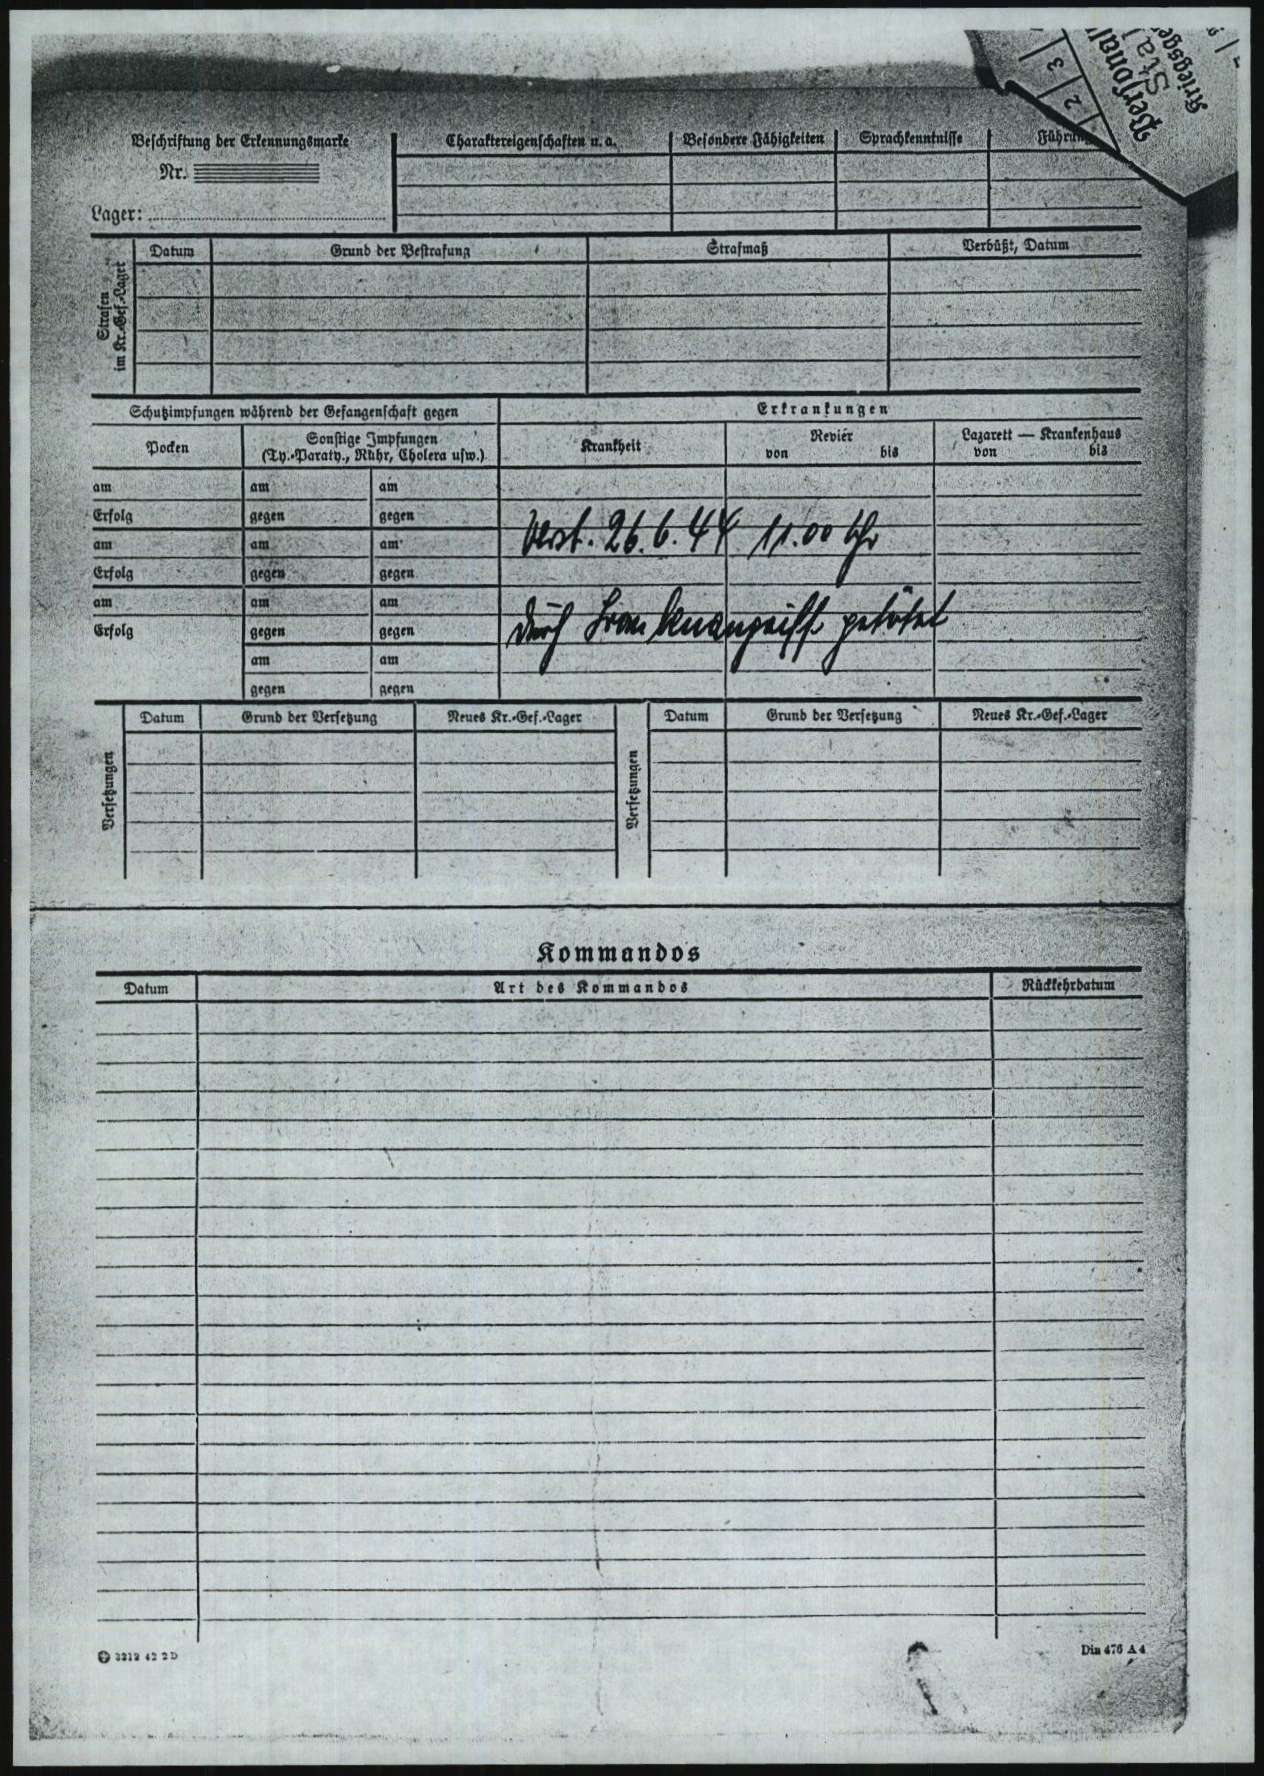 Personal
Sta
Kriegsge
2 3
Beschriftung der Erkennungsmarke
Nr.
Lager:
Charaktereigenschaften u. a. Besondere Fähigkeiten Sprachkenntnisse Führung
Strafen im Kr.-Gef.-Lager
Datum Grund der Bestrafung Strafmaß Verbüßt, Datum
Schutzimpfungen während der Gefangenschaft gegen Erkrankungen
Pocken Sonstige Impfungen (Ty.-Paraty., Ruhr, Cholera usw.) Krankheit Revier von bis Lazarett — Krankenhaus von bis
am am am
Erfolg gegen gegen
Verst. 26.6.44 11.00 Uhr
am am am
Erfolg gegen gegen
am am am
durch getötet
Erfolg gegen gegen
am am
gegen gegen
Versetzungen Datum Grund der Versetzung Neues Kr.-Gef.-Lager Versetzungen Datum Grund der Versetzung Neues Kr.-Gef.-Lager
Kommandos
Datum Art des Kommandos Rückkehrdatum
3212 42 2D Din 476 A 4